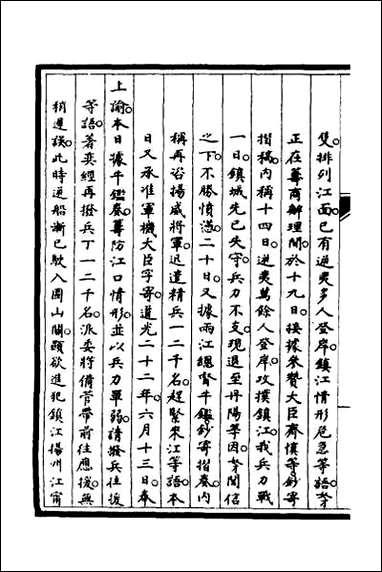 雙排列江面已有逆夷多人登岸鎮江情形危急等語等
正在籌商辦理間於十九日接據參贊大臣齊慎等鈔寄
摺稿內稱十四日逆夷萬餘人登岸攻撲鎮江我兵力戰
一日鎮城先已失守兵力不支現退至丹陽等因等聞信
之下不勝憤懣二十日又據兩江總督牛鑑鈔寄摺奏內
稱再咨揚威將軍迅遣精兵一二千名趕緊來江等語本
日又承准軍機大臣字寄道光二十二年六月十三日奉
上諭本日據牛鑑奏籌防江口情形並以兵力單弱請撥兵往援
等語著奕經再撥兵丁一二千名派委將備管帶前往應援無
稍遲誤此時逆船漸已駛入圌山關頭欲進犯鎮江揚州江甯